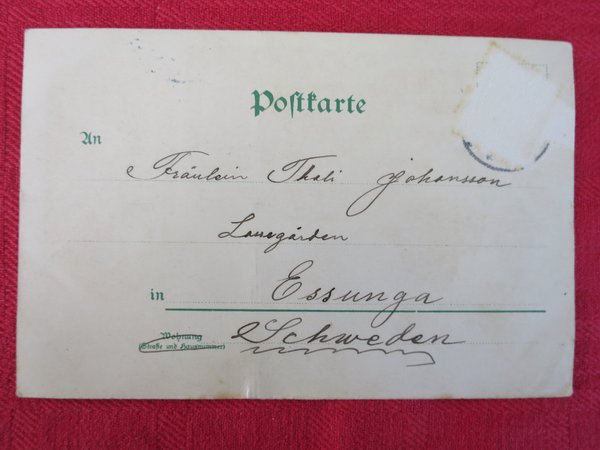 Postkarte
An
Fräulein Thali Johansson
in
Essunga
Wohnung
(Straße und Hausnummer)
Schweden